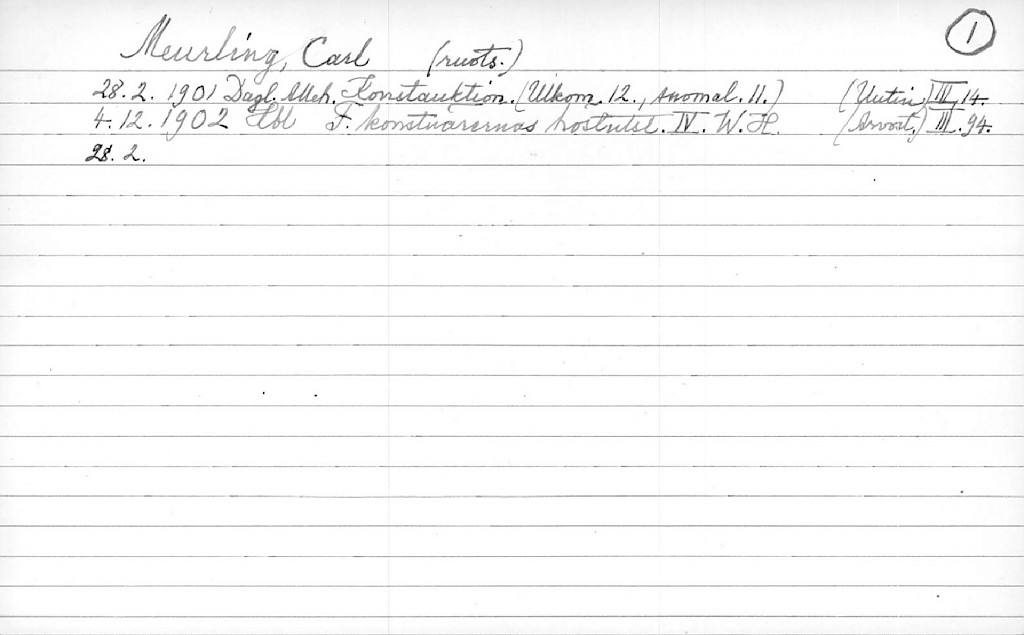 Meurling, Carl (ruots.) 1
28.2. 1901 Dagl. Alleh. Konstauktion. (Ulkom. 12., suomal. 11.) (Uutisia) III 14.
4.12. 1902 Hbl F. konstnärernas höstutst. IV. W. H. (Arvost.) III. 94.
28. 2.